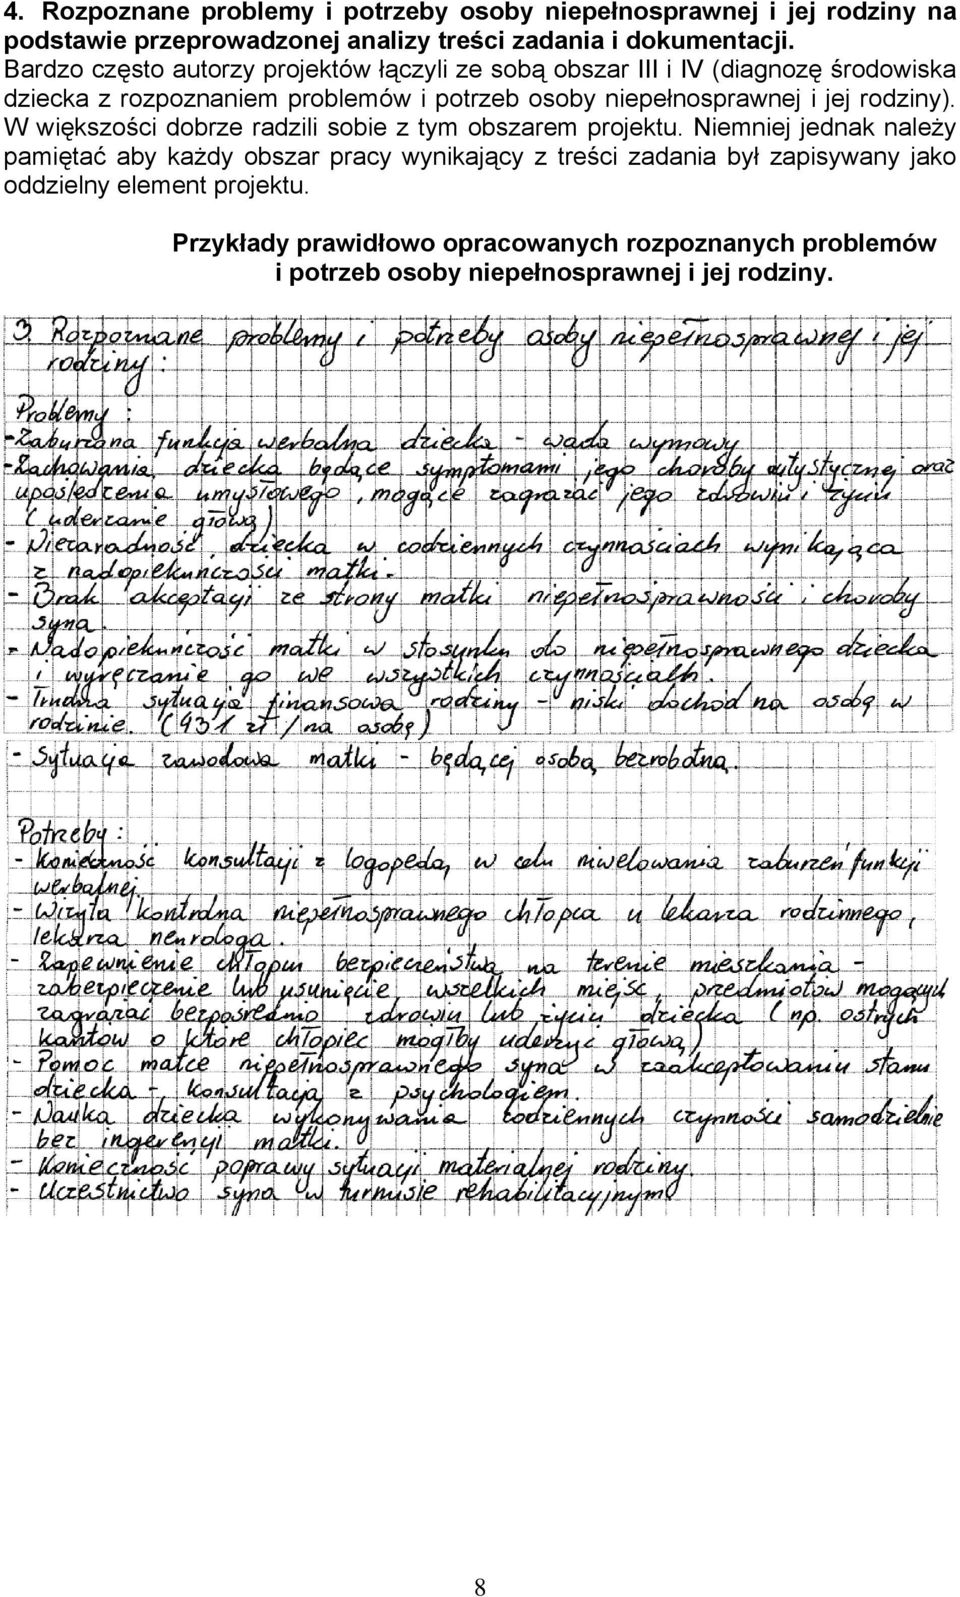 4. Rozpoznane problemy i potrzeby osoby niepełnosprawnej i jej rodziny na
podstawie przeprowadzonej analizy treści zadania i dokumentacji.
Bardzo często autorzy projektów łączyli ze sobą obszar III i IV (diagnozę środowiska
dziecka z rozpoznaniem problemów i potrzeb osoby niepełnosprawnej i jej rodziny).
W większości dobrze radzili sobie z tym obszarem projektu. Niemniej jednak należy
pamiętać aby każdy obszar pracy wynikający z treści zadania był zapisywany jako
oddzielny element projektu.
Przykłady prawidłowo opracowanych rozpoznanych problemów
i potrzeb osoby niepełnosprawnej i jej rodziny.
3. Rozpoznane problemy i potrzeby osoby niepełnosprawnej i jej
rodziny:
Problemy:
- Zaburzona funkcja werbalna dziecka - wada wymowy
- Zachowania dziecka będące symptomami jego choroby autystycznej oraz
upośledzenia umysłowego, mogące zagrażać jego zdrowiu i życiu
(uderzanie głową)
- Niezaradność dziecka w codziennych czynnościach wynikająca
z nadopiekuńczości matki.
- Brak akceptacji ze strony matki niepełnosprawności i choroby
syna.
- Nadopiekuńczość matki w stosunku do niepełnosprawnego dziecka
i wyręczanie go we wszystkich czynnościach.
- Trudna sytuacja finansowa rodziny - niski dochód na osobę w
rodzinie. (431 zł /na osobę)
- Sytuacja zawodowa matki - będącej osobą bezrobotną.
Potrzeby:
- Konieczność konsultacji z logopedą, w celu niwelowania zaburzeń funkcji
werbalnej.
- Wizyta kontrolna niepełnosprawnego chłopca u lekarza rodzinnego,
lekarza neurologa.
- Zapewnienie chłopcu bezpieczeństwa na terenie mieszkania -
zabezpieczenie lub usunięcie wszelkich miejsc, przedmiotów mogących
zagrażać bezpośrednio zdrowiu lub życiu dziecka (np. ostrych
kantów o które chłopiec mógłby uderzyć głową)
- Pomoc matce niepełnosprawnego syna w zaakceptowaniu stanu
dziecka -, konsultacja z psychologiem.
- Nauka dziecka wykonywania codziennych czynności samodzielnie
bez ingerencji matki.
- Konieczność poprawy sytuacji materialnej rodziny.
- Uczestnictwo syna w turnusie rehabilitacyjnym
8